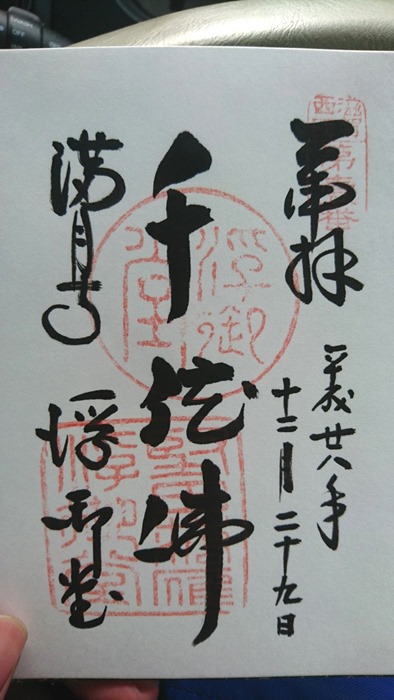 奉拝
平成廿八年
十二月二十九日
千体佛
満月寺
浮御堂
浮御堂